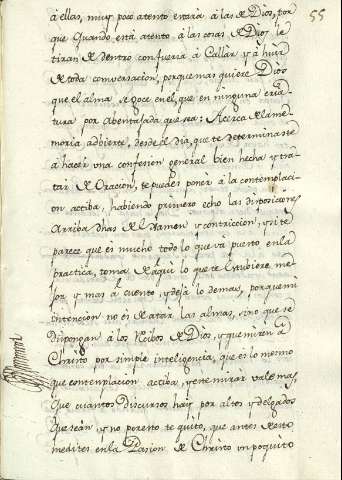 à ellas, muy poco atento estarà à las de Dios, por 55
que quando està atento à las cosas de Dios le
tiran de dentro con fuerza à Callar, y à huir
de toda conversacion, porque mas quiere Dios
que el alma se goce en el, que en ninguna cria
tura por abentajada que sea: Acerca de la me
moria adbierte, desde el dia, que te determinaste
à hacer una confesion general bien hecha y tra
tar de Oracion, te puedes poner à la contemplaci
on actiba, habiendo primero echo las disposiciones
arriba dhas de el examen y contriccion, y si te
parece que es mucho todo lo que và puesto en la
practica, toma de aqui lo que te hubiere me
jor y mas à cuento, y deja lo demas, porque mi
intencion no es de atar las almas, sino que se
dispongan à los recibos de Dios, y que miren à
Christo por simple inteligencia, que es lo mesmo
que contemplacion actiba, y ese mirar vale mas,
que cuantos discursos hay por altos y delgados
que seàn, y no por esto te quito, que antes de esto
medites en la Pasion de Christo un poquito